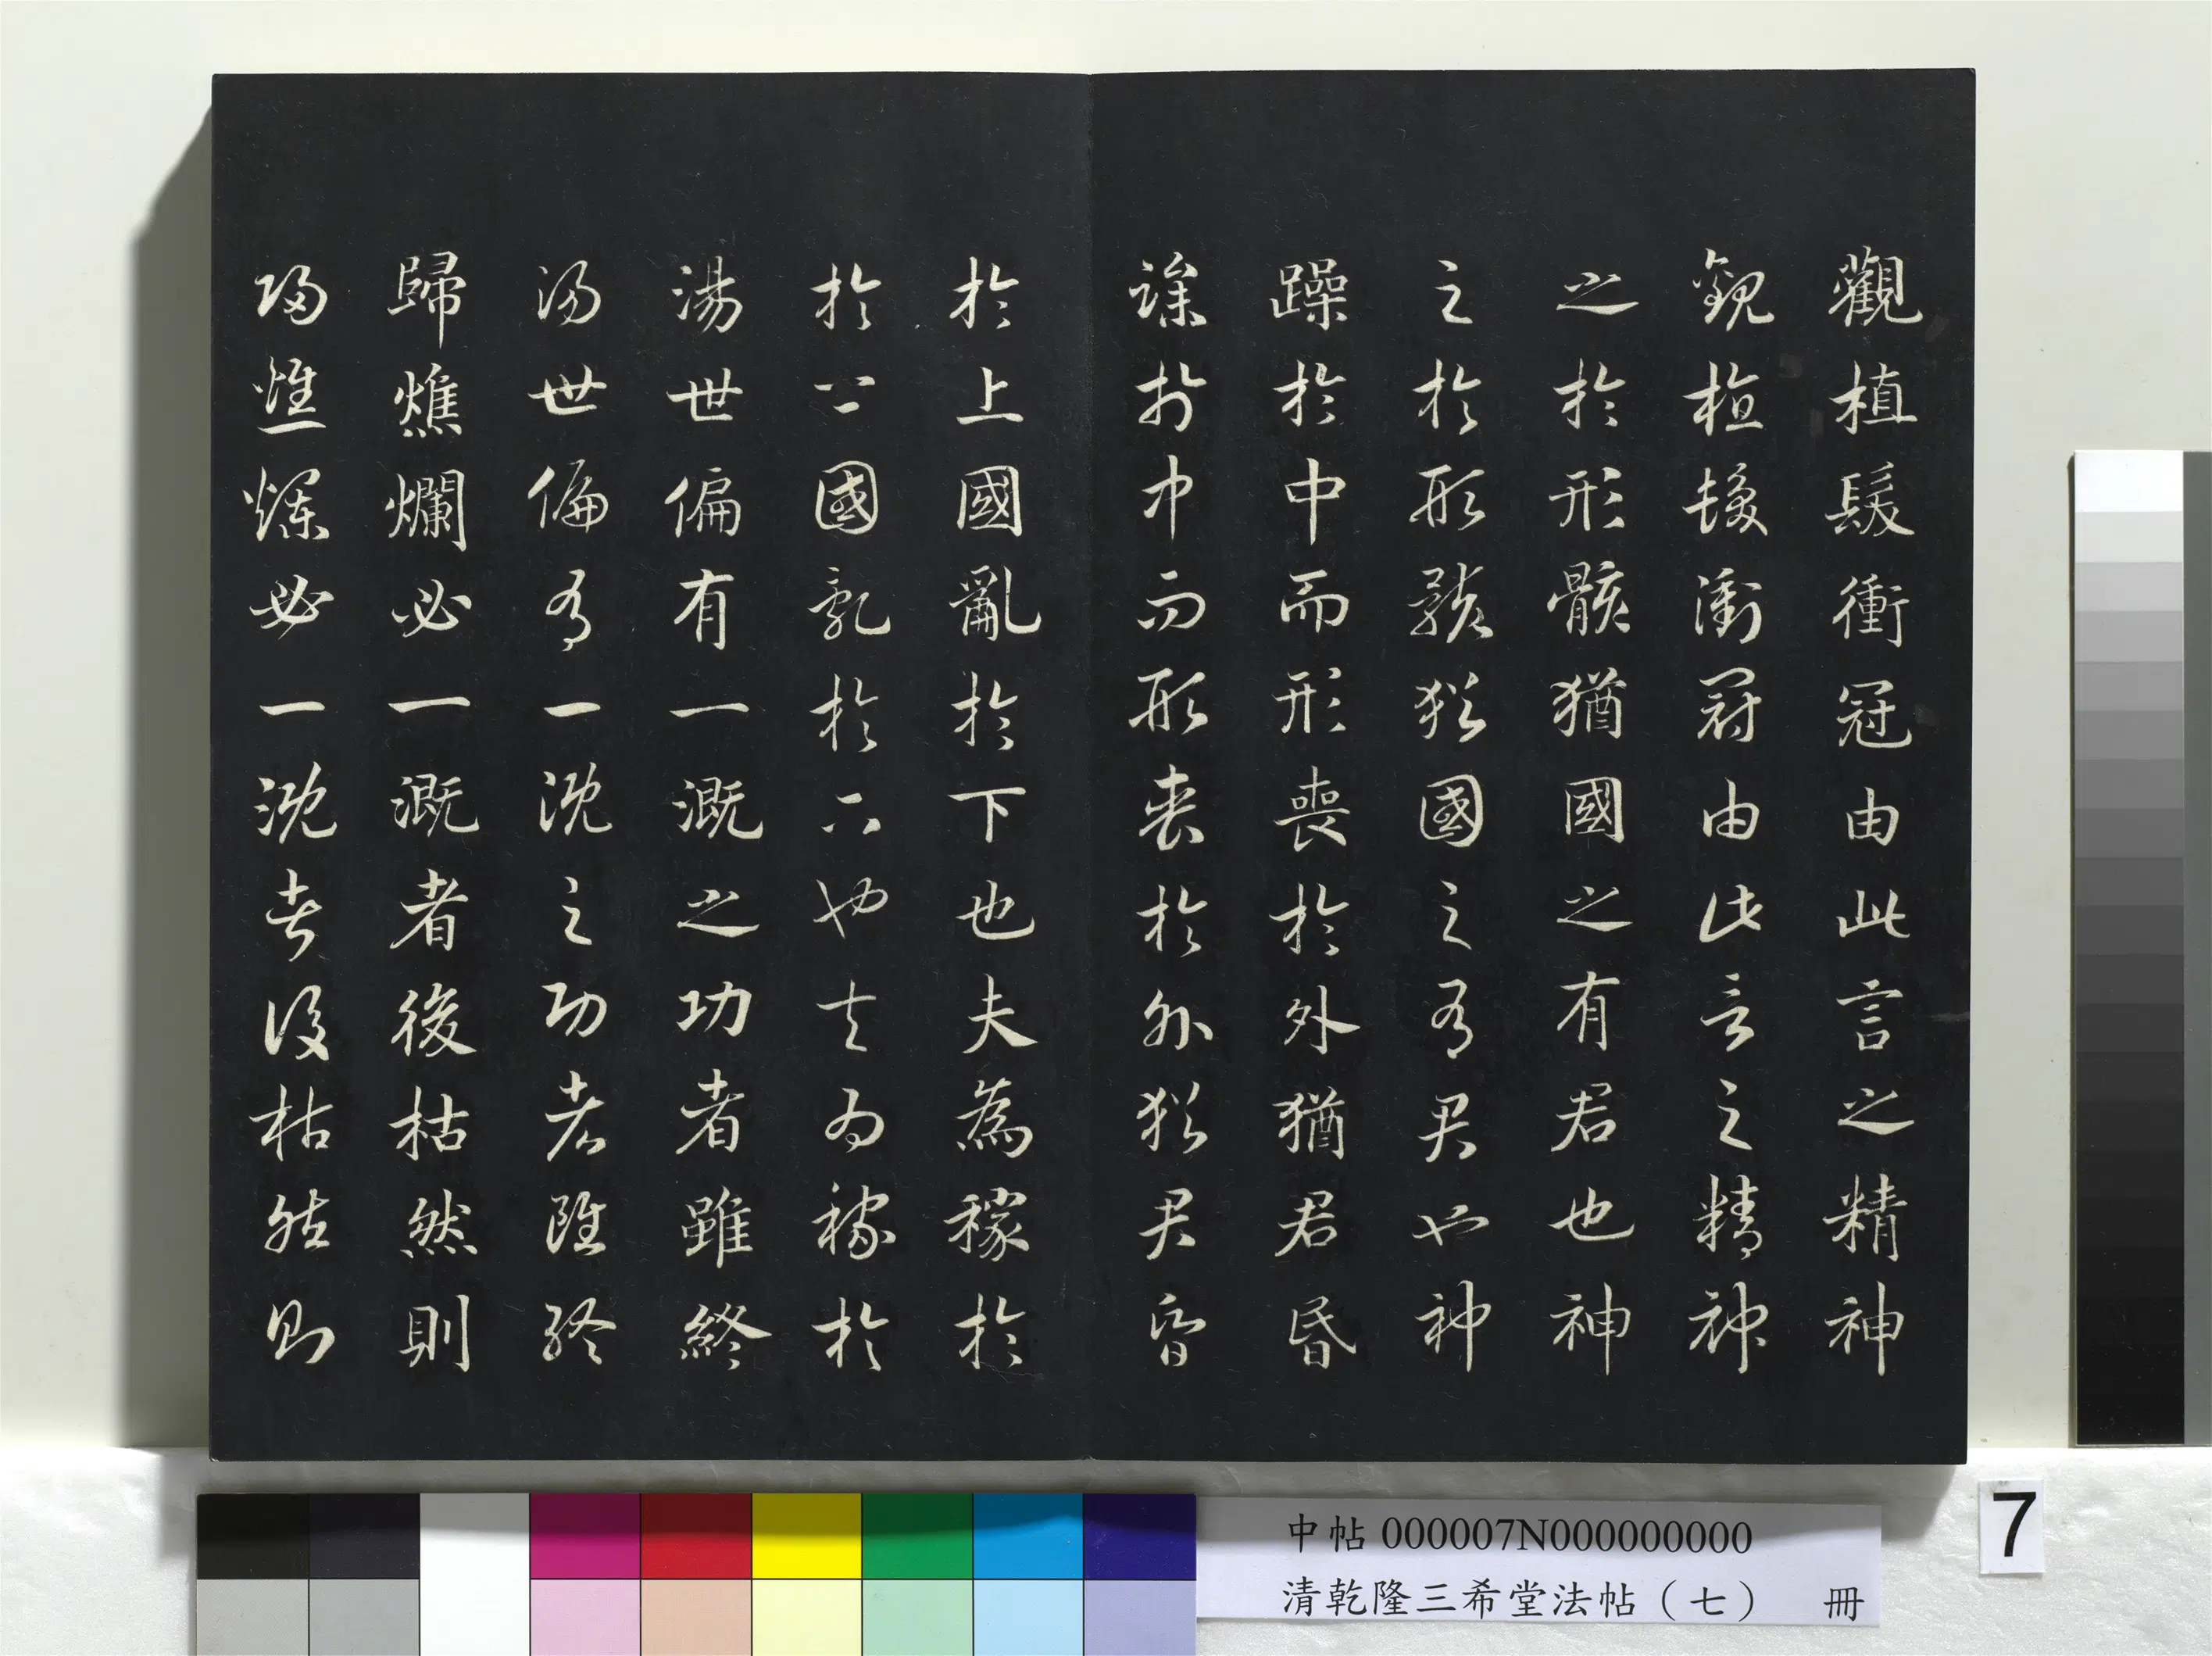 觀植髮衝冠由此言之精神
觀植髮衝冠由此言之精神
之於形骸猶國之有君也神
之於形骸猶國之有君也神
躁於中而形喪於外猶君昏
躁於中而形喪於外猶君昏
於上國亂於下也夫為稼於
於上國亂於下也夫為稼於
湯世偏有一溉之功者雖終
湯世偏有一溉之功者雖終
歸燋爛必一溉者後枯然則
歸燋爛必一溉者後枯然則
中帖 000007N000000000
清乾隆三希堂法帖（七） 冊
7